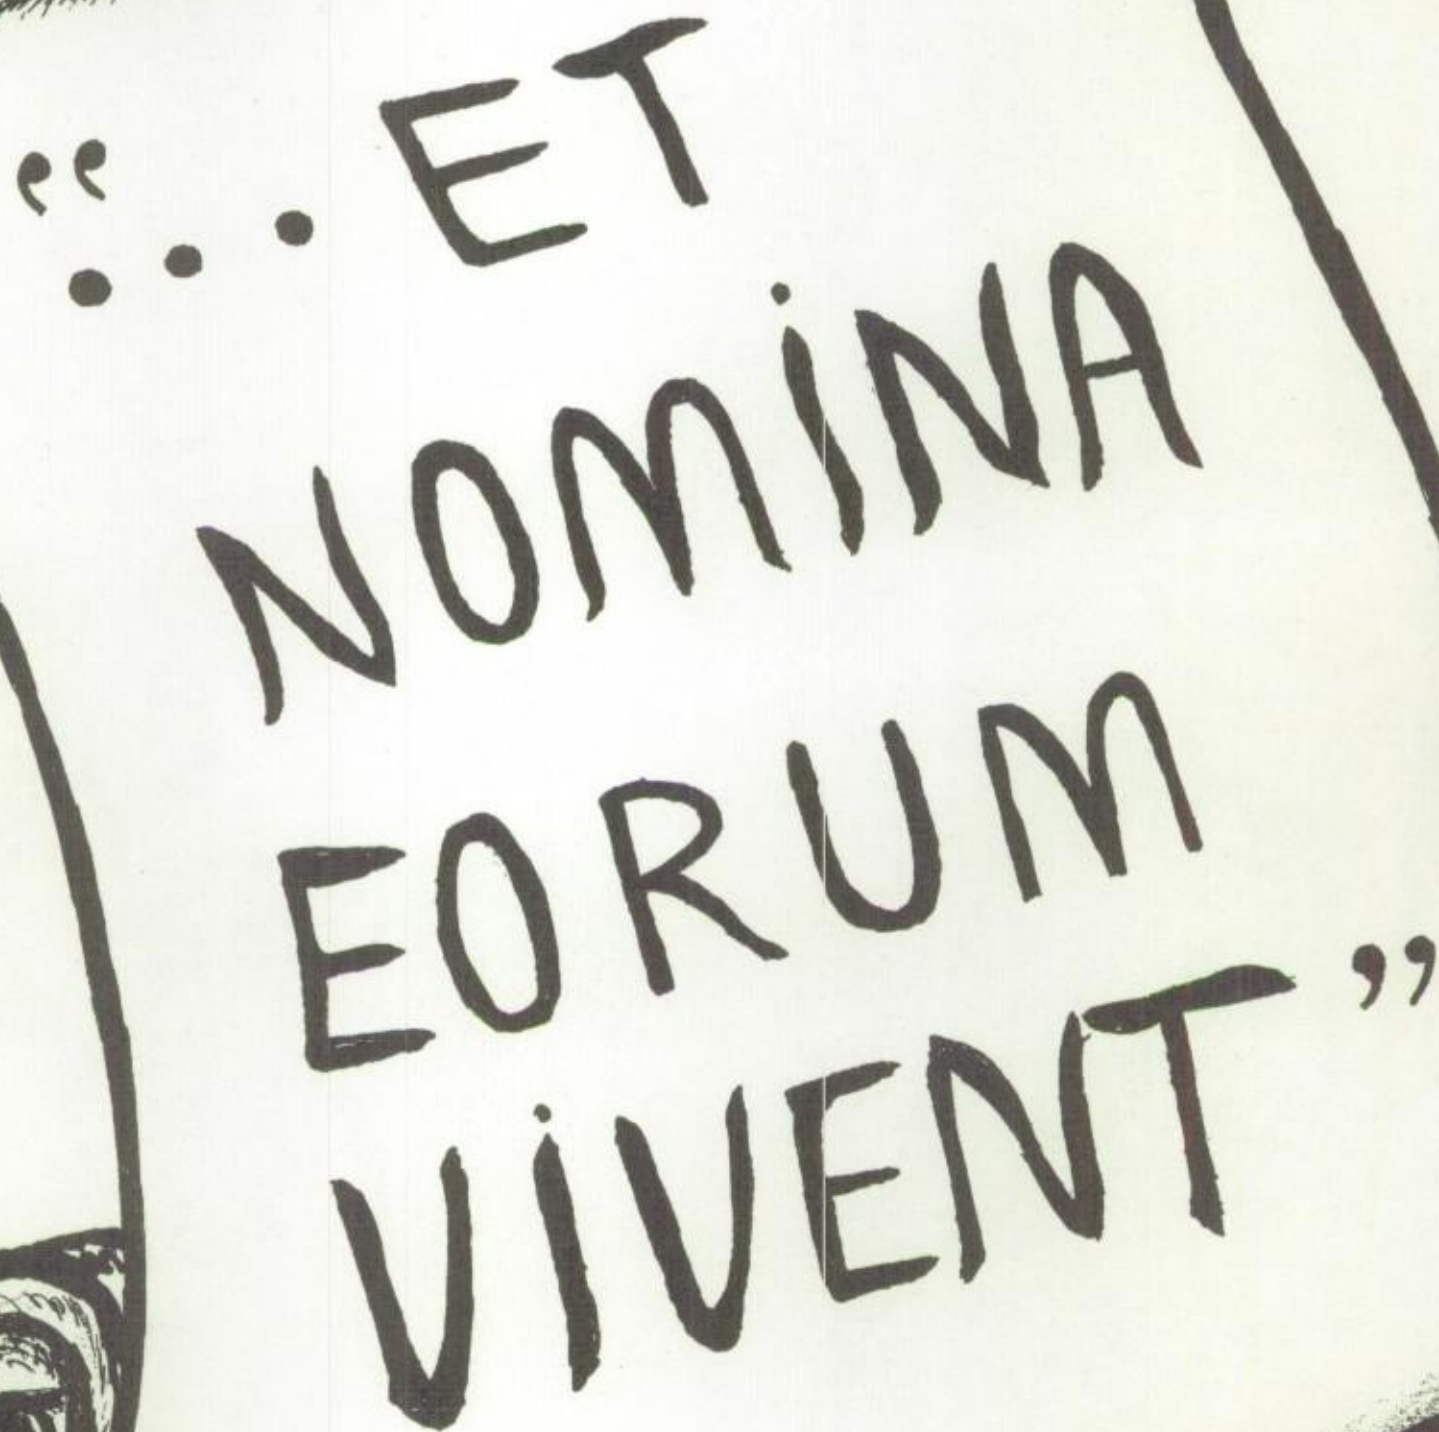 “... ET
NOMINA
EORUM
VIVENT”